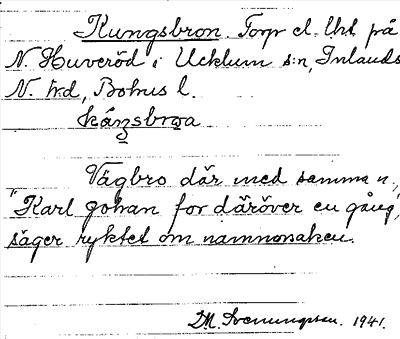 Kungsbron. Torp el. lht på
N. Huveröd i Ucklum s:n, Inlands
N. h:d, Bohus l.
Vägbro där med samma n.,
"Karl Johan for däröver en gång",
säger ryktet om namnorsaken.
M. Svenungsson. 1941.